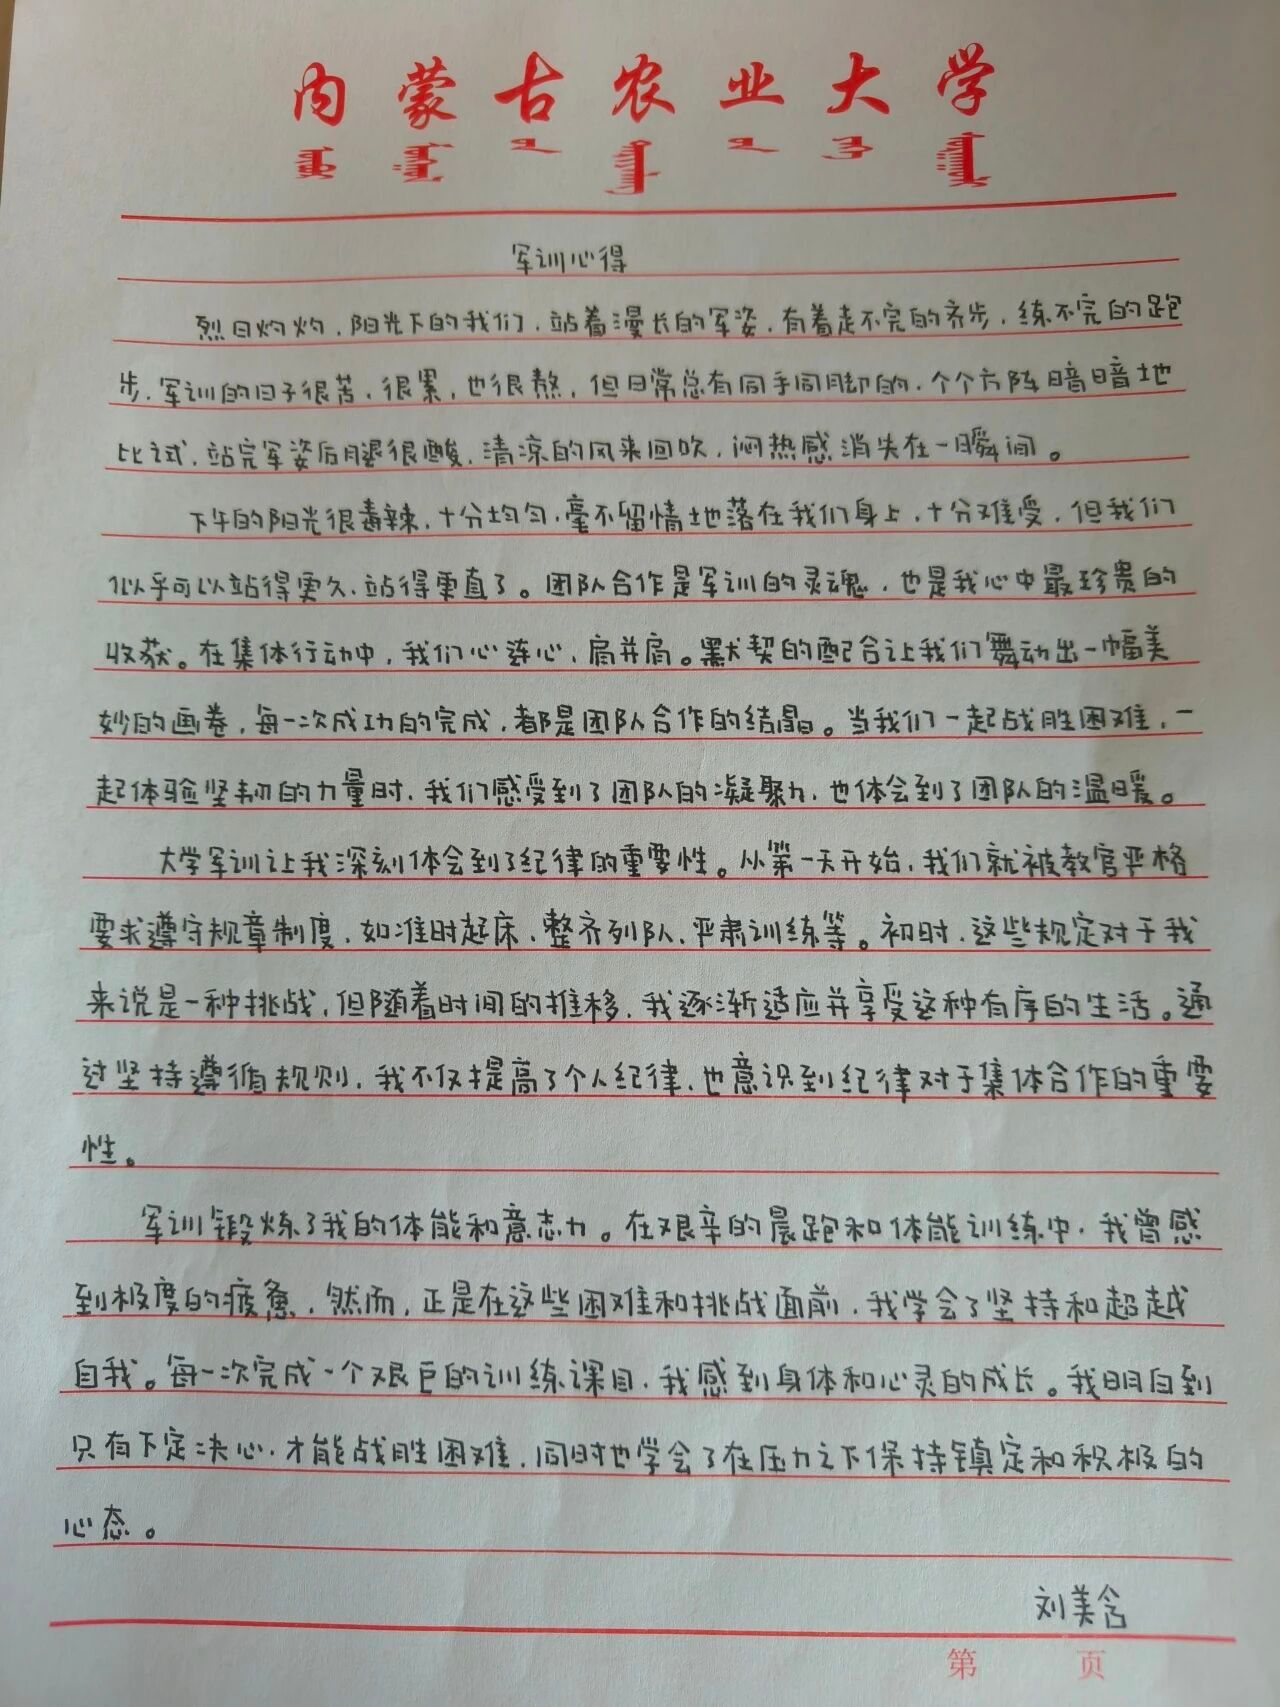 内蒙古农业大学
军训心得
烈日灼灼,阳光下的我们,站着漫长的军姿,有着走不完的齐步,练不完的跑
步,军训的日子很苦,很累,也很熬,但日常总有同手同脚的,个个方阵暗暗地
比试,站完军姿后腿很酸,清凉的风来回吹,闷热感消失在一瞬间。
下午的阳光很毒辣,十分均匀,毫不留情地落在我们身上,十分难受,但我们
似乎可以站得更久,站得更直了。团队合作是军训的灵魂,也是我心中最珍贵的
收获。在集体行动中,我们心连心,肩并肩。默契的配合让我们舞动出一幅美
妙的画卷,每一次成功的完成,都是团队合作的结晶。当我们一起战胜困难,一
起体验坚韧的力量时,我们感受到了团队的凝聚力,也体会到了团队的温暖。
大学军训让我深刻体会到了纪律的重要性。从第一天开始,我们就被教官严格
要求遵守规章制度,如准时起床、整齐列队、严肃训练等。初时,这些规定对于我
来说是一种挑战,但随着时间的推移,我逐渐适应并享受这种有序的生活。通
过坚持遵循规则,我不仅提高了个人纪律,也意识到纪律对于集体合作的重要
性。
军训锻炼了我的体能和意志力。在艰辛的晨跑和体能训练中,我曾感
到极度的疲惫,然而,正是在这些困难和挑战面前,我学会了坚持和超越
自我。每一次完成一个艰巨的训练课目,我感到身体和心灵的成长。我明白到
只有下定决心,才能战胜困难,同时也学会了在压力之下保持镇定和积极的
心态。
刘美含
第 页